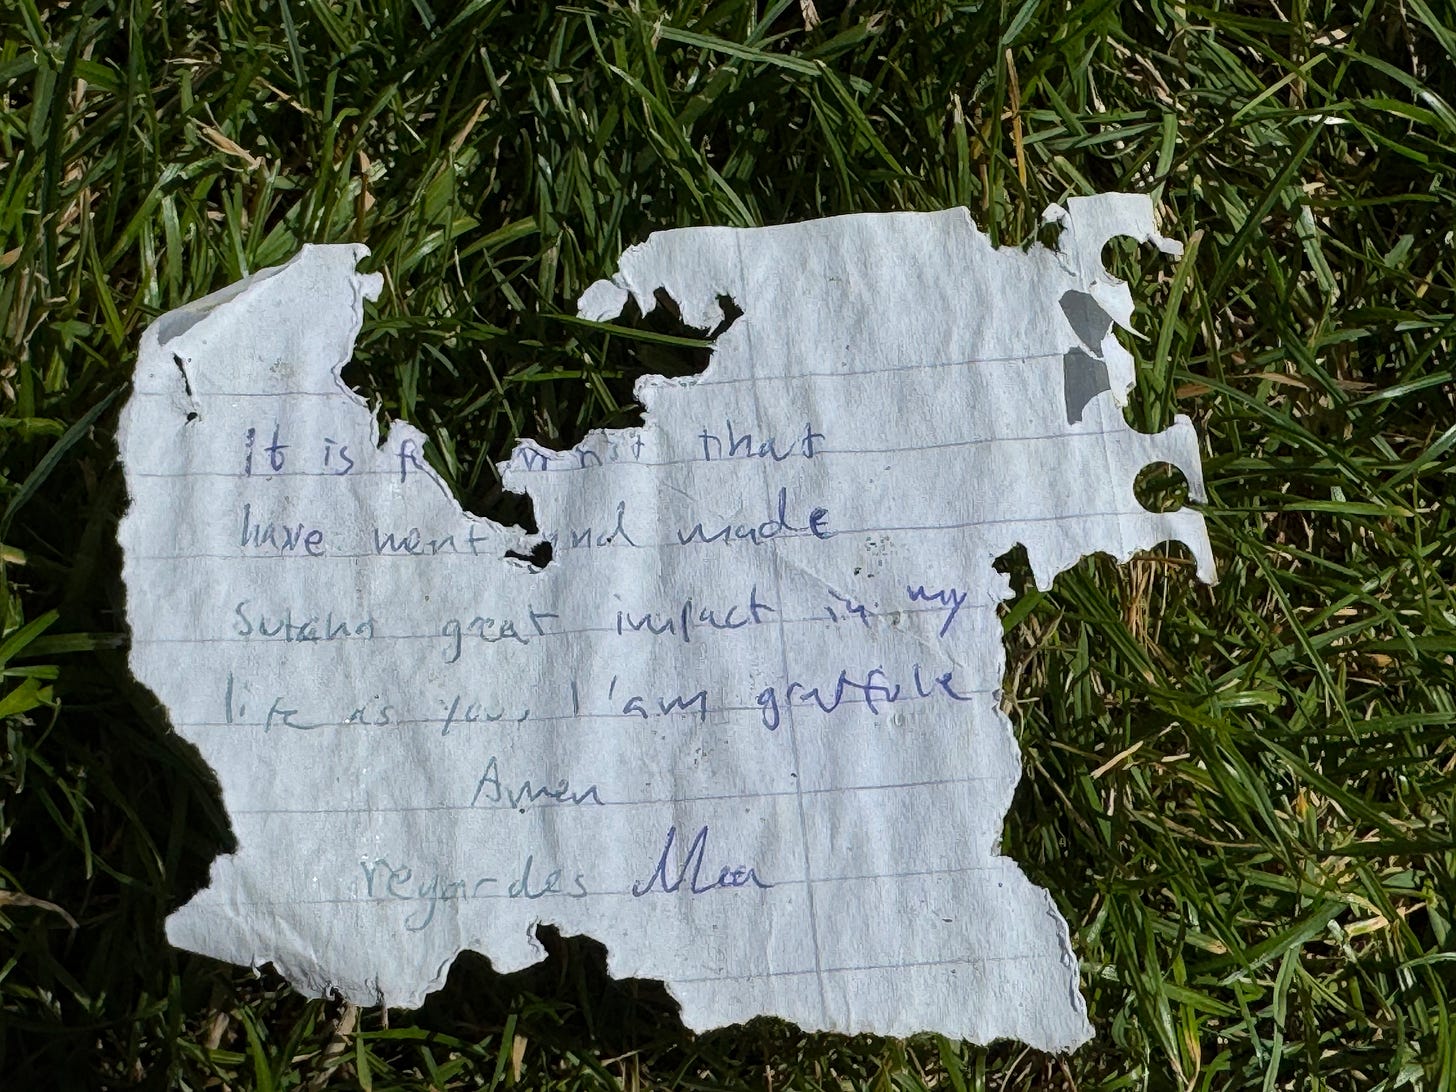 It is that
have went and made
Sutand great impact in my
life as you, I 'am gratfule
Amen
regardes Mea